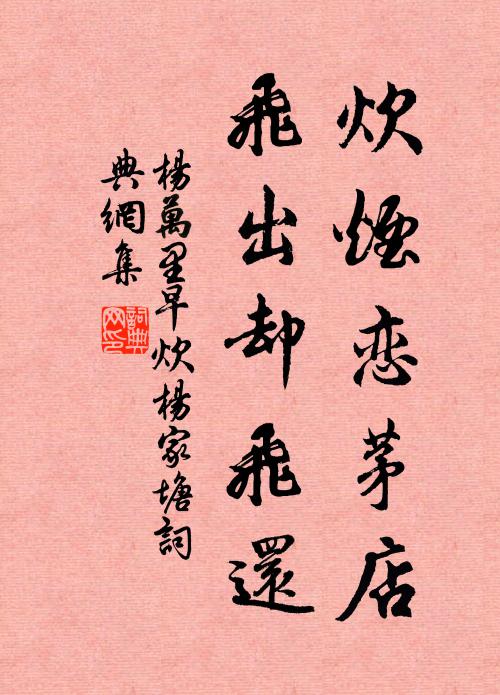 炊煙恋茅店
飛出却飛還
楊萬里早炊楊家塘詞
典網集
詞典
网印